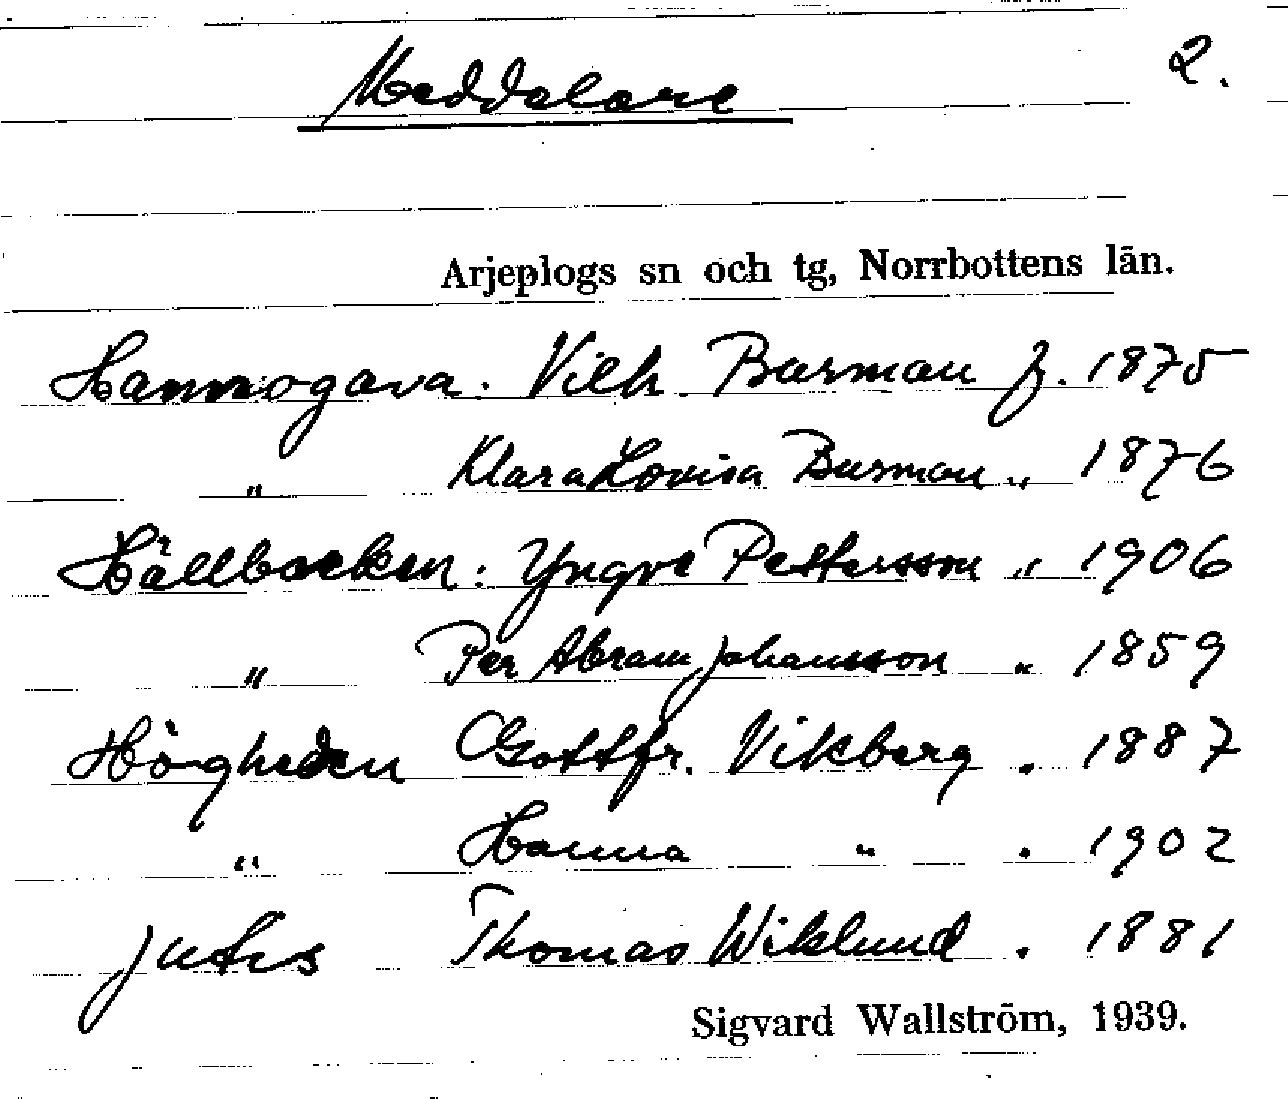 Meddelare 2.
Arjeplogs sn och tg, Norrbottens län.
Hammogava: Vilh. Burman f. 1875
" Klara Lovisa Burman " 1876
Hällbacken: Yngve Pettersson " 1906
" Per Abram Johansson " 1859
Högheden Gottfr. Vikberg " 1887
" Hanna " " 1902
Jutis Thomas Wiklund " 1881
Sigvard Wallström, 1939.